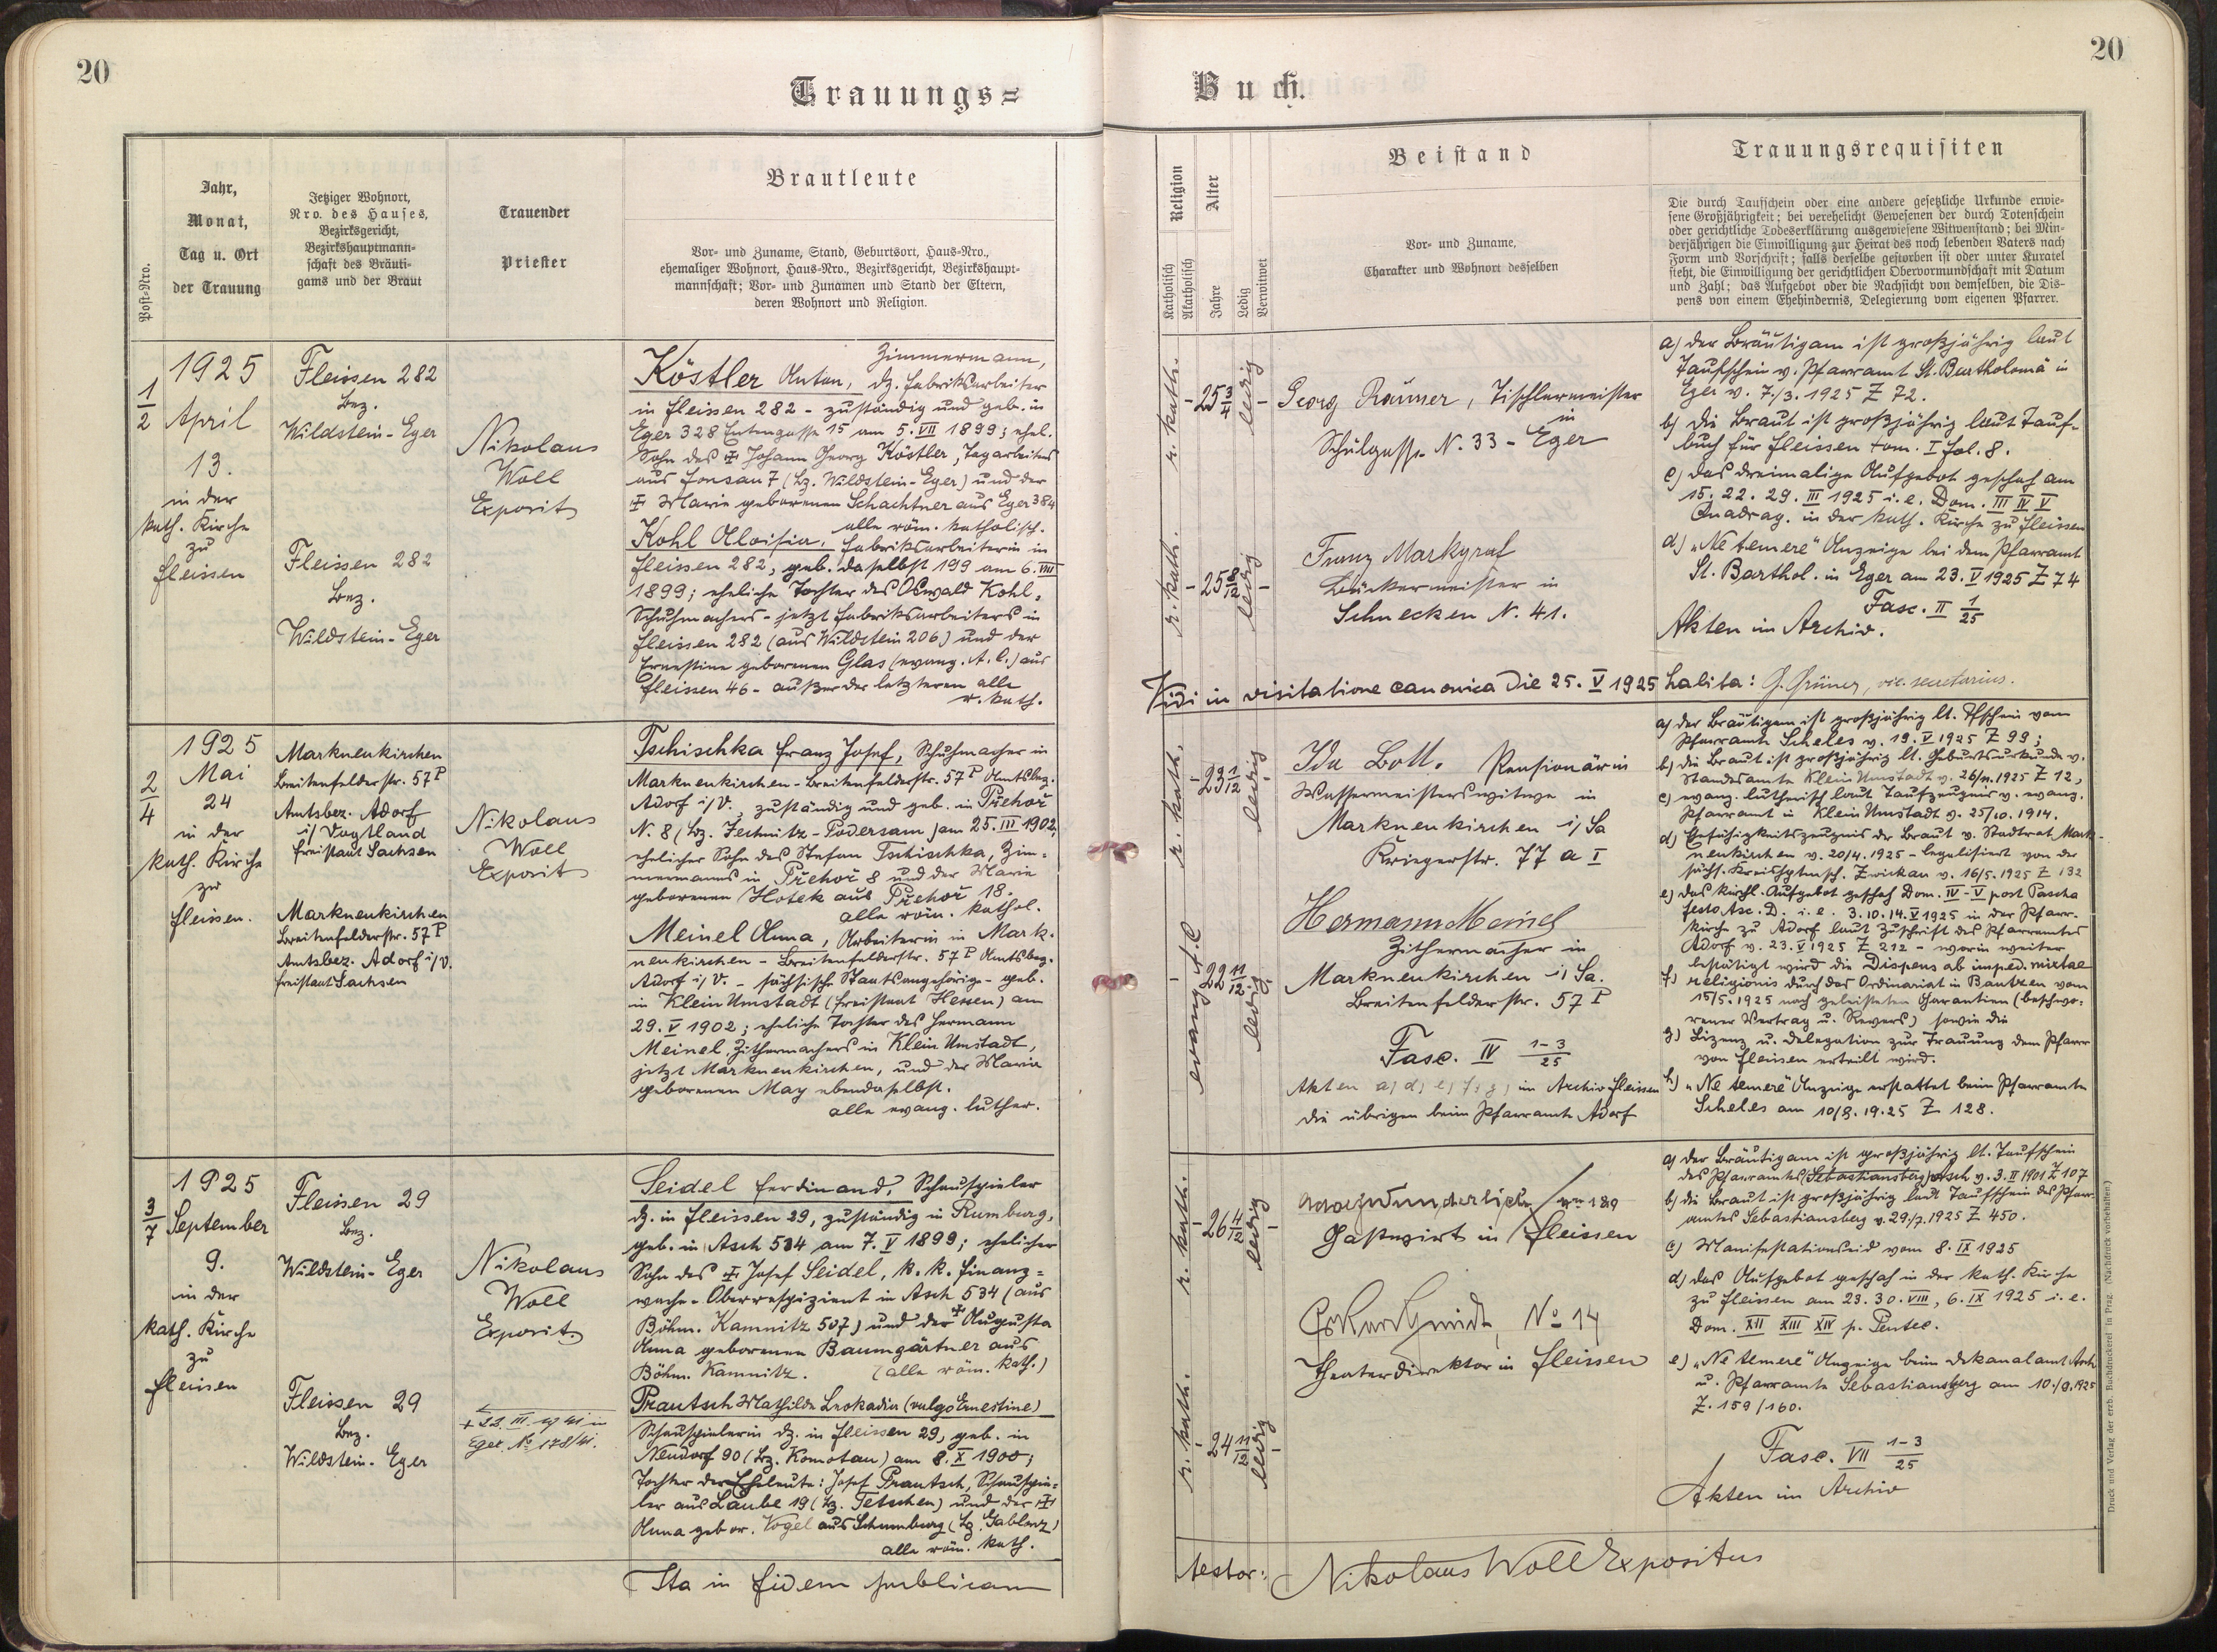 20
20
Trauungs=
Buch.
Post-Nro.
Jahr,
Monat,
Tag u. Ort
der Trauung
Jetziger Wohnort,
Nro. des Hauses,
Bezirksgericht,
Bezirkshauptmann-
schaft des Bräuti-
gams und der Braut
Trauender
Priester
Brautleute
Vor- und Zuname, Stand, Geburtsort, Haus-Nro.,
ehemaliger Wohnort, Haus-Nro., Bezirksgericht, Bezirkshaupt-
mannschaft; Vor- und Zunamen und Stand der Eltern,
deren Wohnort und Religion.
Religion
Katholisch
Akatholisch
Alter
Jahre
Ledig
Verwitwet
Beistand
Vor- und Zuname,
Charakter und Wohnort desselben
Trauungsrequisiten
Die durch Taufschein oder eine andere gesetzliche Urkunde erwie-
sene Großjährigkeit; bei verehelicht Gewesenen der durch Totenschein
oder gerichtliche Todeserklärung ausgewiesene Witwenstand; bei Min-
derjährigen die Einwilligung zur Heirat des noch lebenden Vaters nach
Form und Vorschrift; falls derselbe gestorben ist oder unter Kuratel
steht, die Einwilligung der gerichtlichen Obervormundschaft mit Datum
und Zahl; das Aufgebot oder die Nachsicht von demselben, die Dis-
pens von einem Ehehindernis, Delegierung vom eigenen Pfarrer.
1/2
1925
April
13.
in der
kath. Kirche
zu
Fleissen
Fleissen 282
Bez.
Wildstein-Eger
Fleissen 282
Bez.
Wildstein-Eger
Nikolaus
Woll
Exposit
Zimmermann,
Köstler Anton, dz. Fabriksarbeiter
in Fleissen 282 - zuständig und geb. in
Eger 328 Entengasse 15 am 5. VII 1899; ehel.
Sohn des ✠ Johann Georg Köstler, Tagarbeiters
aus Fonsau 7 (Bz. Wildstein-Eger) und der
✠ Marie geborenen Schachtner aus Eger 384
alle röm. katholisch.
Kohl Aloisia, Fabriksarbeiterin in
Fleissen 282, geb. daselbst 199 am 6. VIII
1899; eheliche Tochter des Oswald Kohl,
Schuhmachers - jetzt Fabriksarbeiters in
Fleissen 282 (aus Wildstein 206) und der
Ernestine geborenen Glas (evang. A. C.) aus
Fleissen 46 - außer der letzteren alle
r. kath.
r. kath.
- 25 3/4 ledig -
r. kath.
- 25 8/12 ledig -
Georg Rauner, Tischlermeister
in
Schulgasse N. 33 - Eger
Franz Markgraf
Bäckermeister in
Schnecken N. 41.
a) der Bräutigam ist großjährig laut
Taufschein v. Pfarramt St. Bartholomä in
Eger v. 7./3. 1925 Z 72.
b) die Braut ist großjährig laut Tauf-
buch für Fleissen tom. I fol. 8.
c) das dreimalige Aufgebot geschah am
15. 22. 29. III 1925 i. e. Dom. III IV V
Quadrag. in der kath. Kirche zu Fleissen
d) „Ne temere" Anzeige bei dem Pfarramt
St. Barthol. in Eger am 23. V 1925 Z 74
Fasc. II 1/25
Akten im Archiv.
Vidi in visitatione canonica die 25. V 1925 habita: G. Grüner, vic. secretarius.
2/4
1925
Mai
24
in der
kath. Kirche
zu
Fleissen.
Markneukirchen
Breitenfelderstr. 57 P
Amtsbez. Adorf
i/ Vogtland
Freistaat Sachsen
Markneukirchen
Breitenfelderstr. 57 P
Amtsbez. Adorf i/V.
Freistaat Sachsen
Nikolaus
Woll
Exposit
Tschischka Franz Josef, Schuhmacher in
Markneukirchen - Breitenfelderstr. 57 P Amtsbez.
Adorf i/V., zuständig und geb. in Přehoř
N. 8 (Bz. Jechnitz - Podersam) am 25. III 1902,
ehelicher Sohn des Stefan Tschischka, Zim-
mermanns in Přehoř 8 und der Marie
geborenen Hotek aus Přehoř 18.
alle röm. kathol.
Meinel Anna, Arbeiterin in Mark-
neukirchen - Breitenfelderstr. 57 P Amtsbez.
Adorf i/V. - sächsische Staatsangehörige - geb.
in Klein Umstadt (Freistaat Hessen) am
29. V 1902; eheliche Tochter des Hermann
Meinel, Zithermachers in Klein Umstadt,
jetzt Markneukirchen, und der Maria
geborenen May ebendaselbst.
alle evang. luther.
r. kath.
- 23 1/12 ledig -
evang. A. C
- 22 11/12 ledig -
Ida Bott. Pensionärin
Wassermeisterswitwe in
Markneukirchen i/Sa
Kriegerstr. 77 a I
Hermann Meinel
Zithermacher in
Markneukirchen i/Sa.
Breitenfelderstr. 57 P
Fasc. IV 1-3/25
Akten a, d, e, f, g, im Archiv Fleissen
die übrigen beim Pfarramte Adorf
a) der Bräutigam ist großjährig lt. Tfschein vom
Pfarramte Scheles v. 19. V 1925 Z 99;
b) die Braut ist großjährig lt. Geburtsurkunde v.
Standesamte Klein Umstadt v. 26/4. 1925 Z 12,
c) evang. lutherisch laut Taufzeugnis v. evang.
Pfarramt in Klein Umstadt v. 25/10. 1914.
d) Ehefähigkeitszeugnis der Braut v. Stadtrat Mark-
neukirchen v. 20/4. 1925 - legalisiert von der
sächs. Kreishptmsch. Zwickau v. 16/5. 1925 Z 132
e) das kirchl. Aufgebot geschah Dom. IV - V post Pascha
festo Asc. D. i. e. 3. 10. 14. V 1925 in der Pfarr-
kirche zu Adorf laut Zuschrift des Pfarramtes
Adorf v. 23. V 1925 Z 212 - worin weiter
bestätigt wird die Dispens ab imped. mixtae
f) religionis durch das Ordinariat in Bautzen vom
15/5. 1925 nach geleisteten Garantien (beschwo-
rener Vertrag u. Revers) sowie die
g) Lizenz u. Delegation zur Trauung dem Pfarrer
von Fleissen erteilt wird.
h) „Ne temere" Anzeige erstattet beim Pfarramte
Scheles am 10/8. 19.25 Z 128.
3/7
1925
September
9.
in der
kath. Kirche
zu
Fleissen
Fleissen 29
Bez.
Wildstein-Eger
Fleissen 29
Bez.
Wildstein-Eger
Nikolaus
Woll
Exposit.
Eger No 178/41.
Seidel Ferdinand, Schauspieler
dz. in Fleissen 29, zuständig in Rumburg,
geb. in Asch 534 am 7. V 1899; ehelicher
Sohn des ✠ Josef Seidel, k. k. Finanz-
wache-Oberrespizient in Asch 534 (aus
Böhm. Kamnitz 507) und der ✠ Augusta
Anna geborenen Baumgärtner aus
Böhm. Kamnitz. (alle röm. kath.)
Prautsch Mathilde Leokadia (vulgo Ernestine)
Schauspielerin dz. in Fleissen 29, geb. in
Neudorf 90 (Bz. Komotau) am 8. X 1900;
Tochter der Eheleute: Josef Prautsch, Schauspie-
ler aus Laube 19 (Bz. Tetschen) und der ✠
Anna gebor. Vogel aus Schumburg (Bz. Gablonz)
alle röm. kath.
r. kath.
- 26 4/12 ledig -
r. kath.
- 24 11/12 ledig -
Wunderlich No 189
Gastwirt in Fleissen
No 14
Theaterdirektor in Fleissen
a) der Bräutigam ist großjährig lt. Taufschein
des Pfarramts (Sebastiansberg) Asch v. 3. II 1901 Z 107
b) die Braut ist großjährig laut Taufschein des Pfarr-
amtes Sebastiansberg v. 29./7. 1925 Z 450.
c) Manifestationseid vom 8. IX 1925
d) das Aufgebot geschah in der kath. Kirche
zu Fleissen am 23. 30. VIII, 6. IX 1925 i. e.
Dom. XII XIII XIV p. Pentec.
e) „Ne temere" Anzeige beim Dekanalamt Asch
u. Pfarramte Sebastiansberg am 10./9. 1925
Z. 159/160.
Fasc. VII 1-3/25
Akten im Archiv
Ita in fidem publicam
testor: Nikolaus Woll Expositus
Druck und Verlag der erzb. Buchdruckerei in Prag. (Nachdruck vorbehalten.)